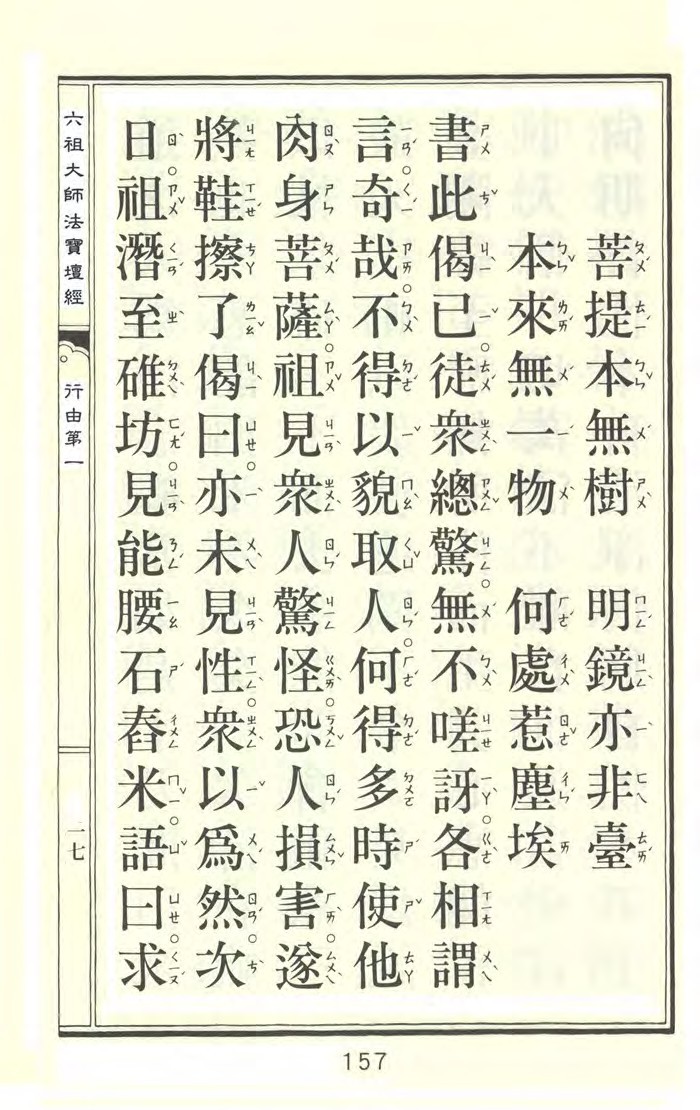 菩提本無樹　明鏡亦非臺
本來無一物　何處惹塵埃
書此偈已。徒眾總驚。無不嗟訝。各相謂
言。奇哉。不得以貌取人。何得多時使他
肉身菩薩。祖見眾人驚怪。恐人損害。遂
將鞋擦了偈曰。亦未見性。眾以爲然。次
日。祖潛至碓坊。見能腰石舂米。語曰。求
六祖大師法寶壇經
行由第一
二七
157